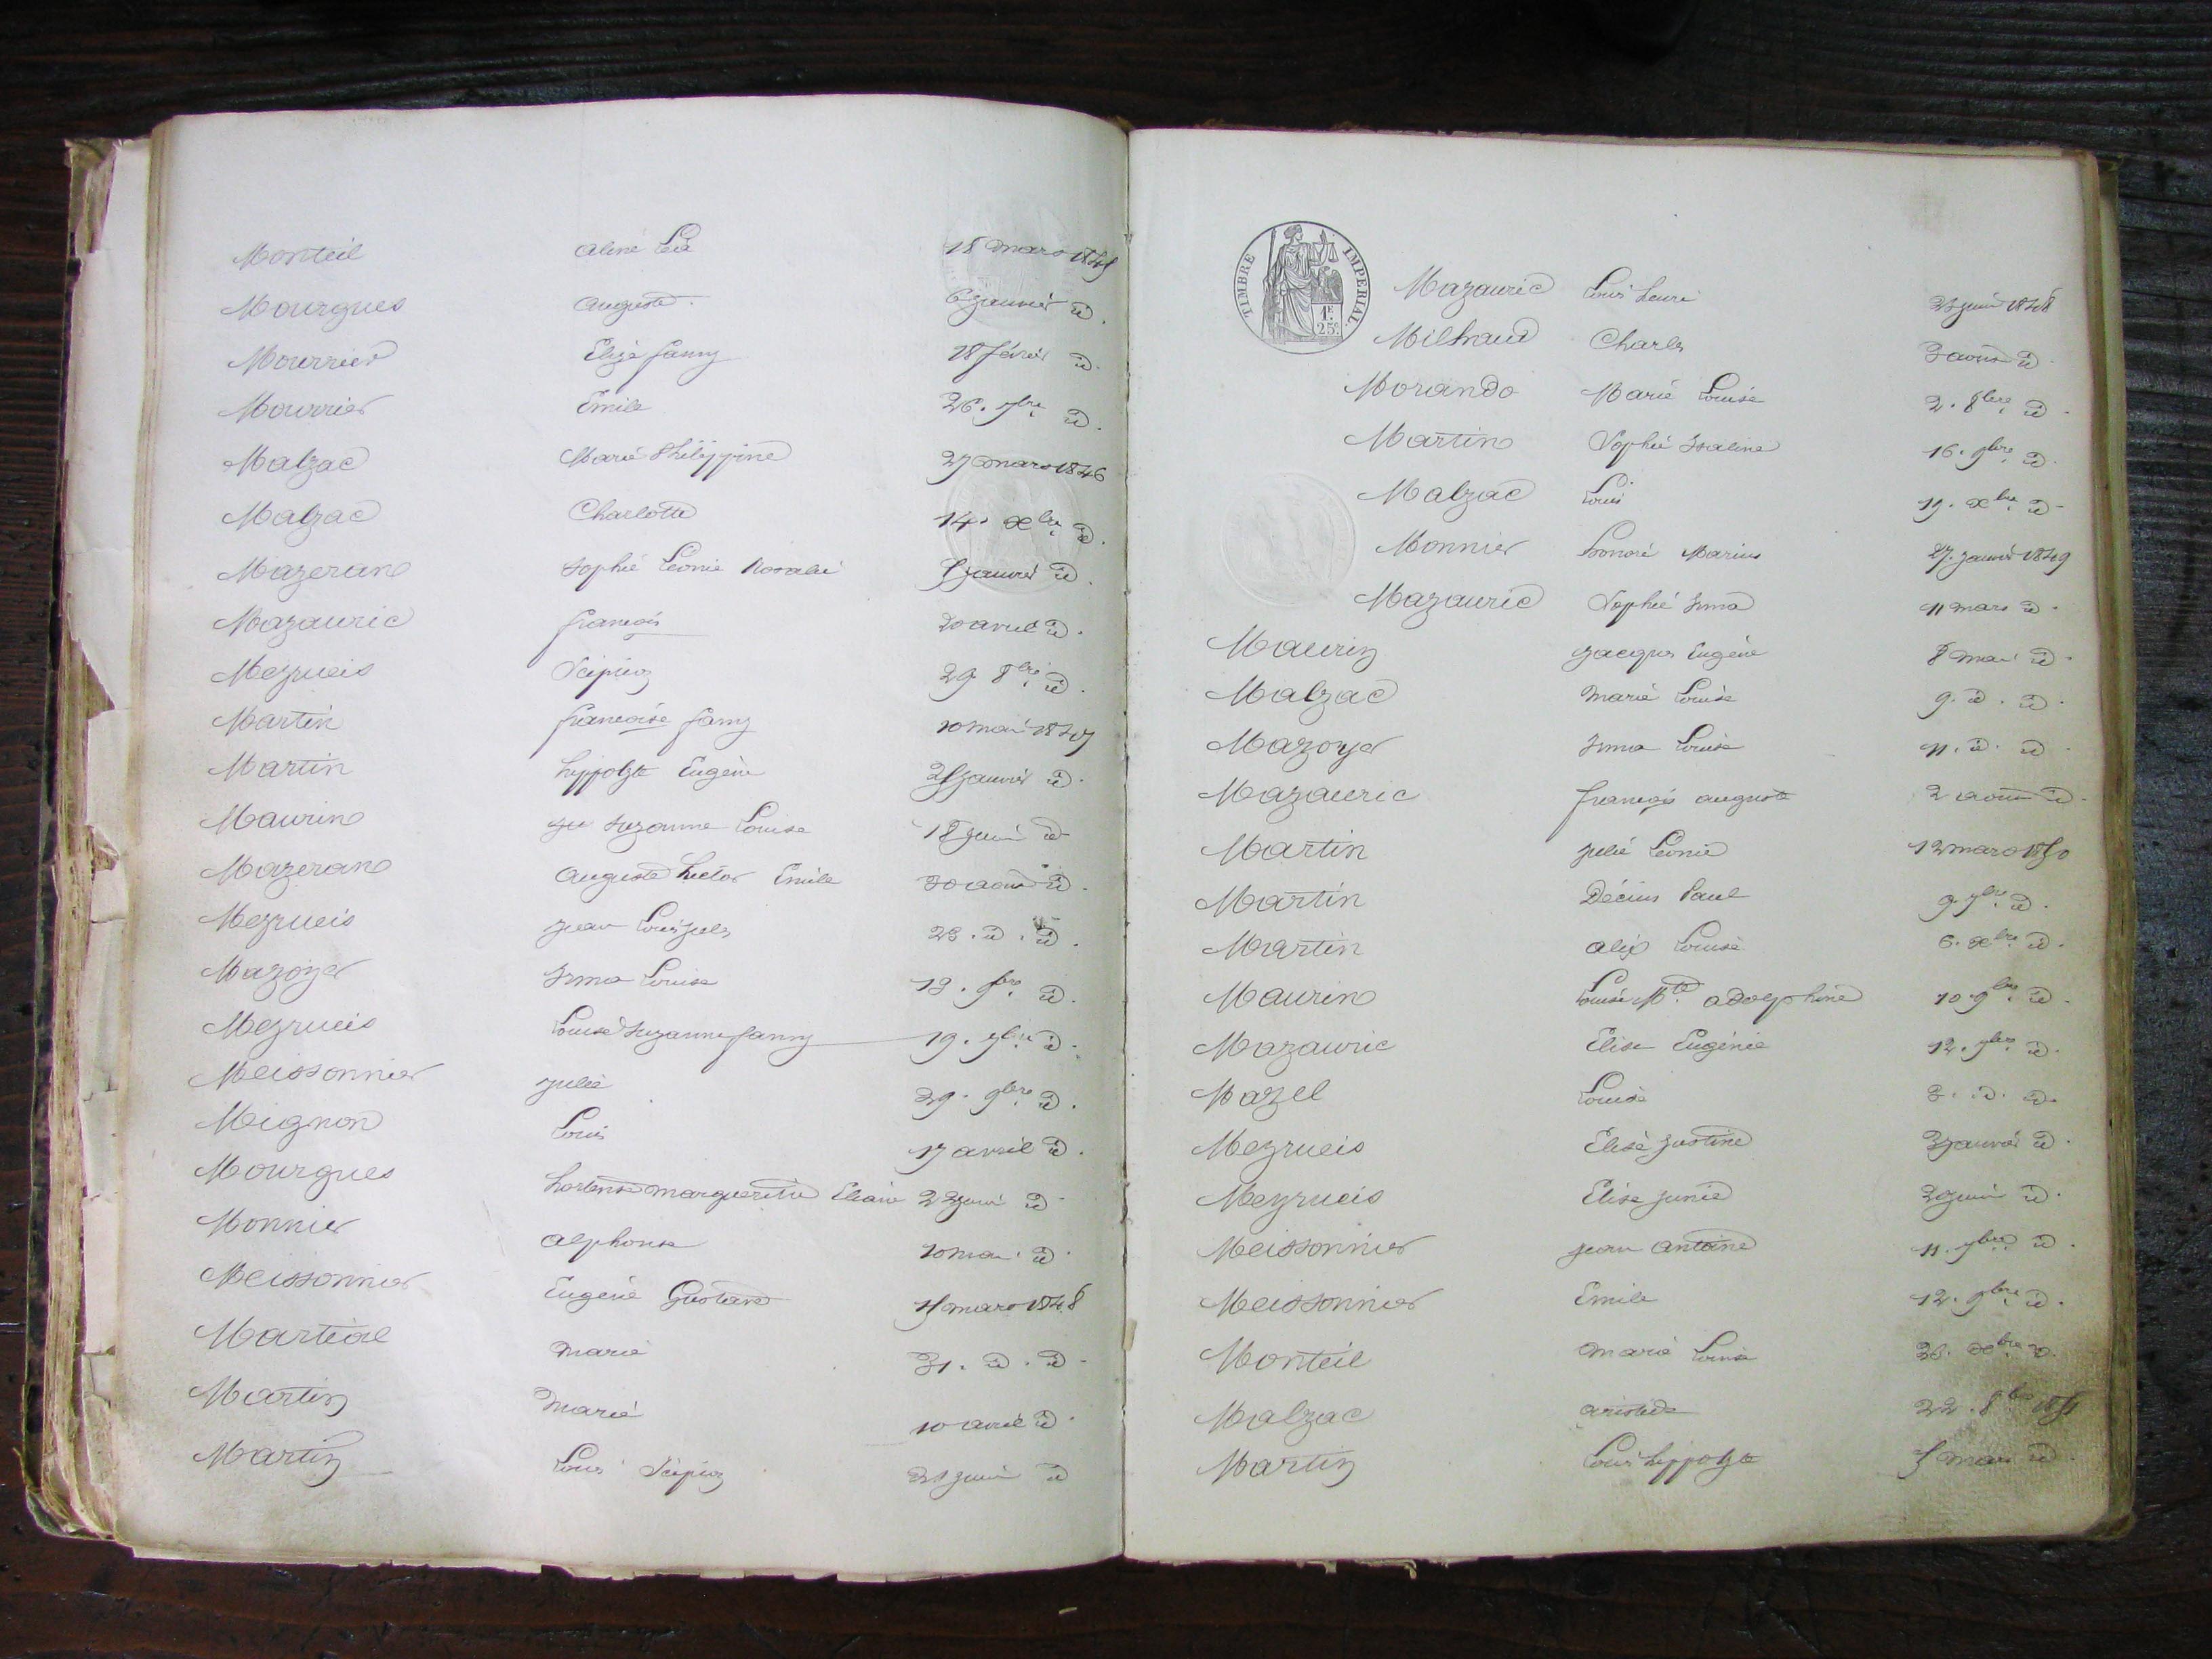 Monteil Aline 18 mars
Mourgues Auguste. 6 janvier id.
Mourrier Elize fanny 18 février id.
Mourrier Emile 26. 7bre id.
Malzac Marie Philippine 27 mars 1846
Malzac Charlotte 14. xbre id.
Mazeran Sophie Léonie Rosalie janvier id.
Mazauric françois 20 avril id.
Meyrueis Scipion 29 8bre id.
Martin françoise fanny 10 mai 1847
Martin hippolyte Eugène janvier id.
Maurin Suzanne Louise 18 juin id
Mazeran Auguste hector Emile 30 aout id.
Meyrueis jean Louis jules 23. id. id.
Mazoyer Irma Louise 13. 9bre id.
Meyrueis Louise Suzanne fanny 19. 9bre id.
Meissonnier julie 29. 9bre id.
Mignon Louis 17 avril id.
Mourgues hortense marguerite 22 juin id
Monnier Alphonse 10 mai id.
Meissonnier Eugène Gustave mars 1848
Martial Marie 31. id. id.
Martin Marie 10 avril id.
Martin Louis Scipion juin id
TIMBRE IMPERIAL.
1F. 25c.
Mazauric Louis henri juin 1848
Milhaud Charles 3 aout id.
Morando Marie Louise 2. 8bre id.
Martin Sophie Isaline 16. 9bre id.
Malzac Louis 19. xbre id.
Monnier honoré Marius 27. janvier 1849
Mazauric Sophie Irma 11 mars id.
Maurin jacques Eugène 8 mai id.
Malzac Marie Louise 9. id. id.
Mazoyer Irma Louise 11. id. id
Mazauric françois auguste 2 aout id.
Martin julie Léonie 12 mars 1850
Martin Décius Paul 9 7bre id.
Martin Alix Louise 6. xbre id.
Maurin Louise Mte adolphine 10. 9bre id.
Mazauric Elise Eugénie 12. 7bre id.
Mazel Louise 3. id. id.
Meyrueis Elise justine janvier id.
Meyrueis Elise junie juin id.
Meissonnier jean antoine 11. 7bre id.
Meissonnier Emile 12. 9bre id.
Monteil Marie Louise 26. xbre id.
Malzac aristide 22. 8bre 1851
Martin Louis hippolyte id.